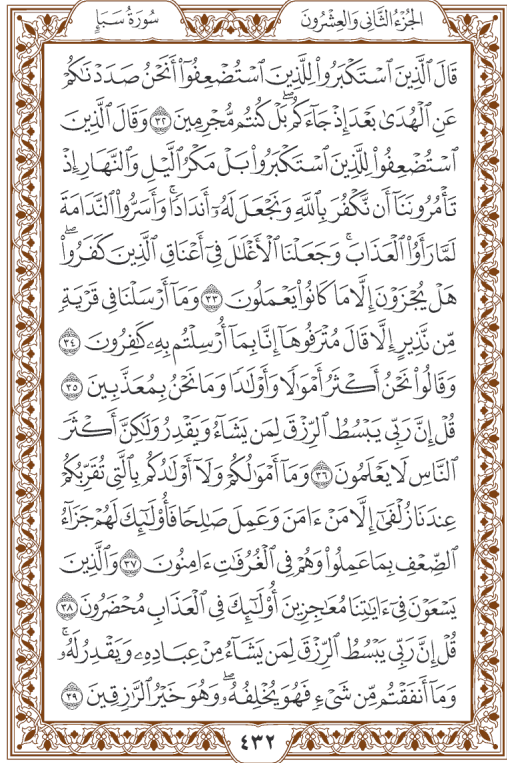 الجُزْءُ الثَّانِي وَالعِشْرُونَ سُورَةُ سَبَإٍ
قَالَ ٱلَّذِينَ ٱسْتَكْبَرُوا۟ لِلَّذِينَ ٱسْتُضْعِفُوٓا۟ أَنَحْنُ صَدَدْنَٰكُمْ
عَنِ ٱلْهُدَىٰ بَعْدَ إِذْ جَآءَكُم ۖ بَلْ كُنتُم مُّجْرِمِينَ ٣٢ وَقَالَ ٱلَّذِينَ
ٱسْتُضْعِفُوا۟ لِلَّذِينَ ٱسْتَكْبَرُوا۟ بَلْ مَكْرُ ٱلَّيْلِ وَٱلنَّهَارِ إِذْ
تَأْمُرُونَنَآ أَن نَّكْفُرَ بِٱللَّهِ وَنَجْعَلَ لَهُۥٓ أَندَادًا ۚ وَأَسَرُّوا۟ ٱلنَّدَامَةَ
لَمَّا رَأَوُا۟ ٱلْعَذَابَ ۚ وَجَعَلْنَا ٱلْأَغْلَٰلَ فِىٓ أَعْنَاقِ ٱلَّذِينَ كَفَرُوا۟ ۖ
هَلْ يُجْزَوْنَ إِلَّا مَا كَانُوا۟ يَعْمَلُونَ ٣٣ وَمَآ أَرْسَلْنَا فِى قَرْيَةٍ
مِّن نَّذِيرٍ إِلَّا قَالَ مُتْرَفُوهَآ إِنَّا بِمَآ أُرْسِلْتُم بِهِۦ كَٰفِرُونَ ٣٤
وَقَالُوا۟ نَحْنُ أَكْثَرُ أَمْوَٰلًا وَأَوْلَٰدًا وَمَا نَحْنُ بِمُعَذَّبِينَ ٣٥
قُلْ إِنَّ رَبِّى يَبْسُطُ ٱلرِّزْقَ لِمَن يَشَآءُ وَيَقْدِرُ وَلَٰكِنَّ أَكْثَرَ
ٱلنَّاسِ لَا يَعْلَمُونَ ٣٦ وَمَآ أَمْوَٰلُكُمْ وَلَآ أَوْلَٰدُكُم بِٱلَّتِى تُقَرِّبُكُمْ
عِندَنَا زُلْفَىٰٓ إِلَّا مَنْ ءَامَنَ وَعَمِلَ صَٰلِحًا فَأُو۟لَٰٓئِكَ لَهُمْ جَزَآءُ
ٱلضِّعْفِ بِمَا عَمِلُوا۟ وَهُمْ فِى ٱلْغُرُفَٰتِ ءَامِنُونَ ٣٧ وَٱلَّذِينَ
يَسْعَوْنَ فِىٓ ءَايَٰتِنَا مُعَٰجِزِينَ أُو۟لَٰٓئِكَ فِى ٱلْعَذَابِ مُحْضَرُونَ ٣٨
قُلْ إِنَّ رَبِّى يَبْسُطُ ٱلرِّزْقَ لِمَن يَشَآءُ مِنْ عِبَادِهِۦ وَيَقْدِرُ لَهُۥ ۚ
وَمَآ أَنفَقْتُم مِّن شَىْءٍ فَهُوَ يُخْلِفُهُۥ ۖ وَهُوَ خَيْرُ ٱلرَّٰزِقِينَ ٣٩
٤٣٢